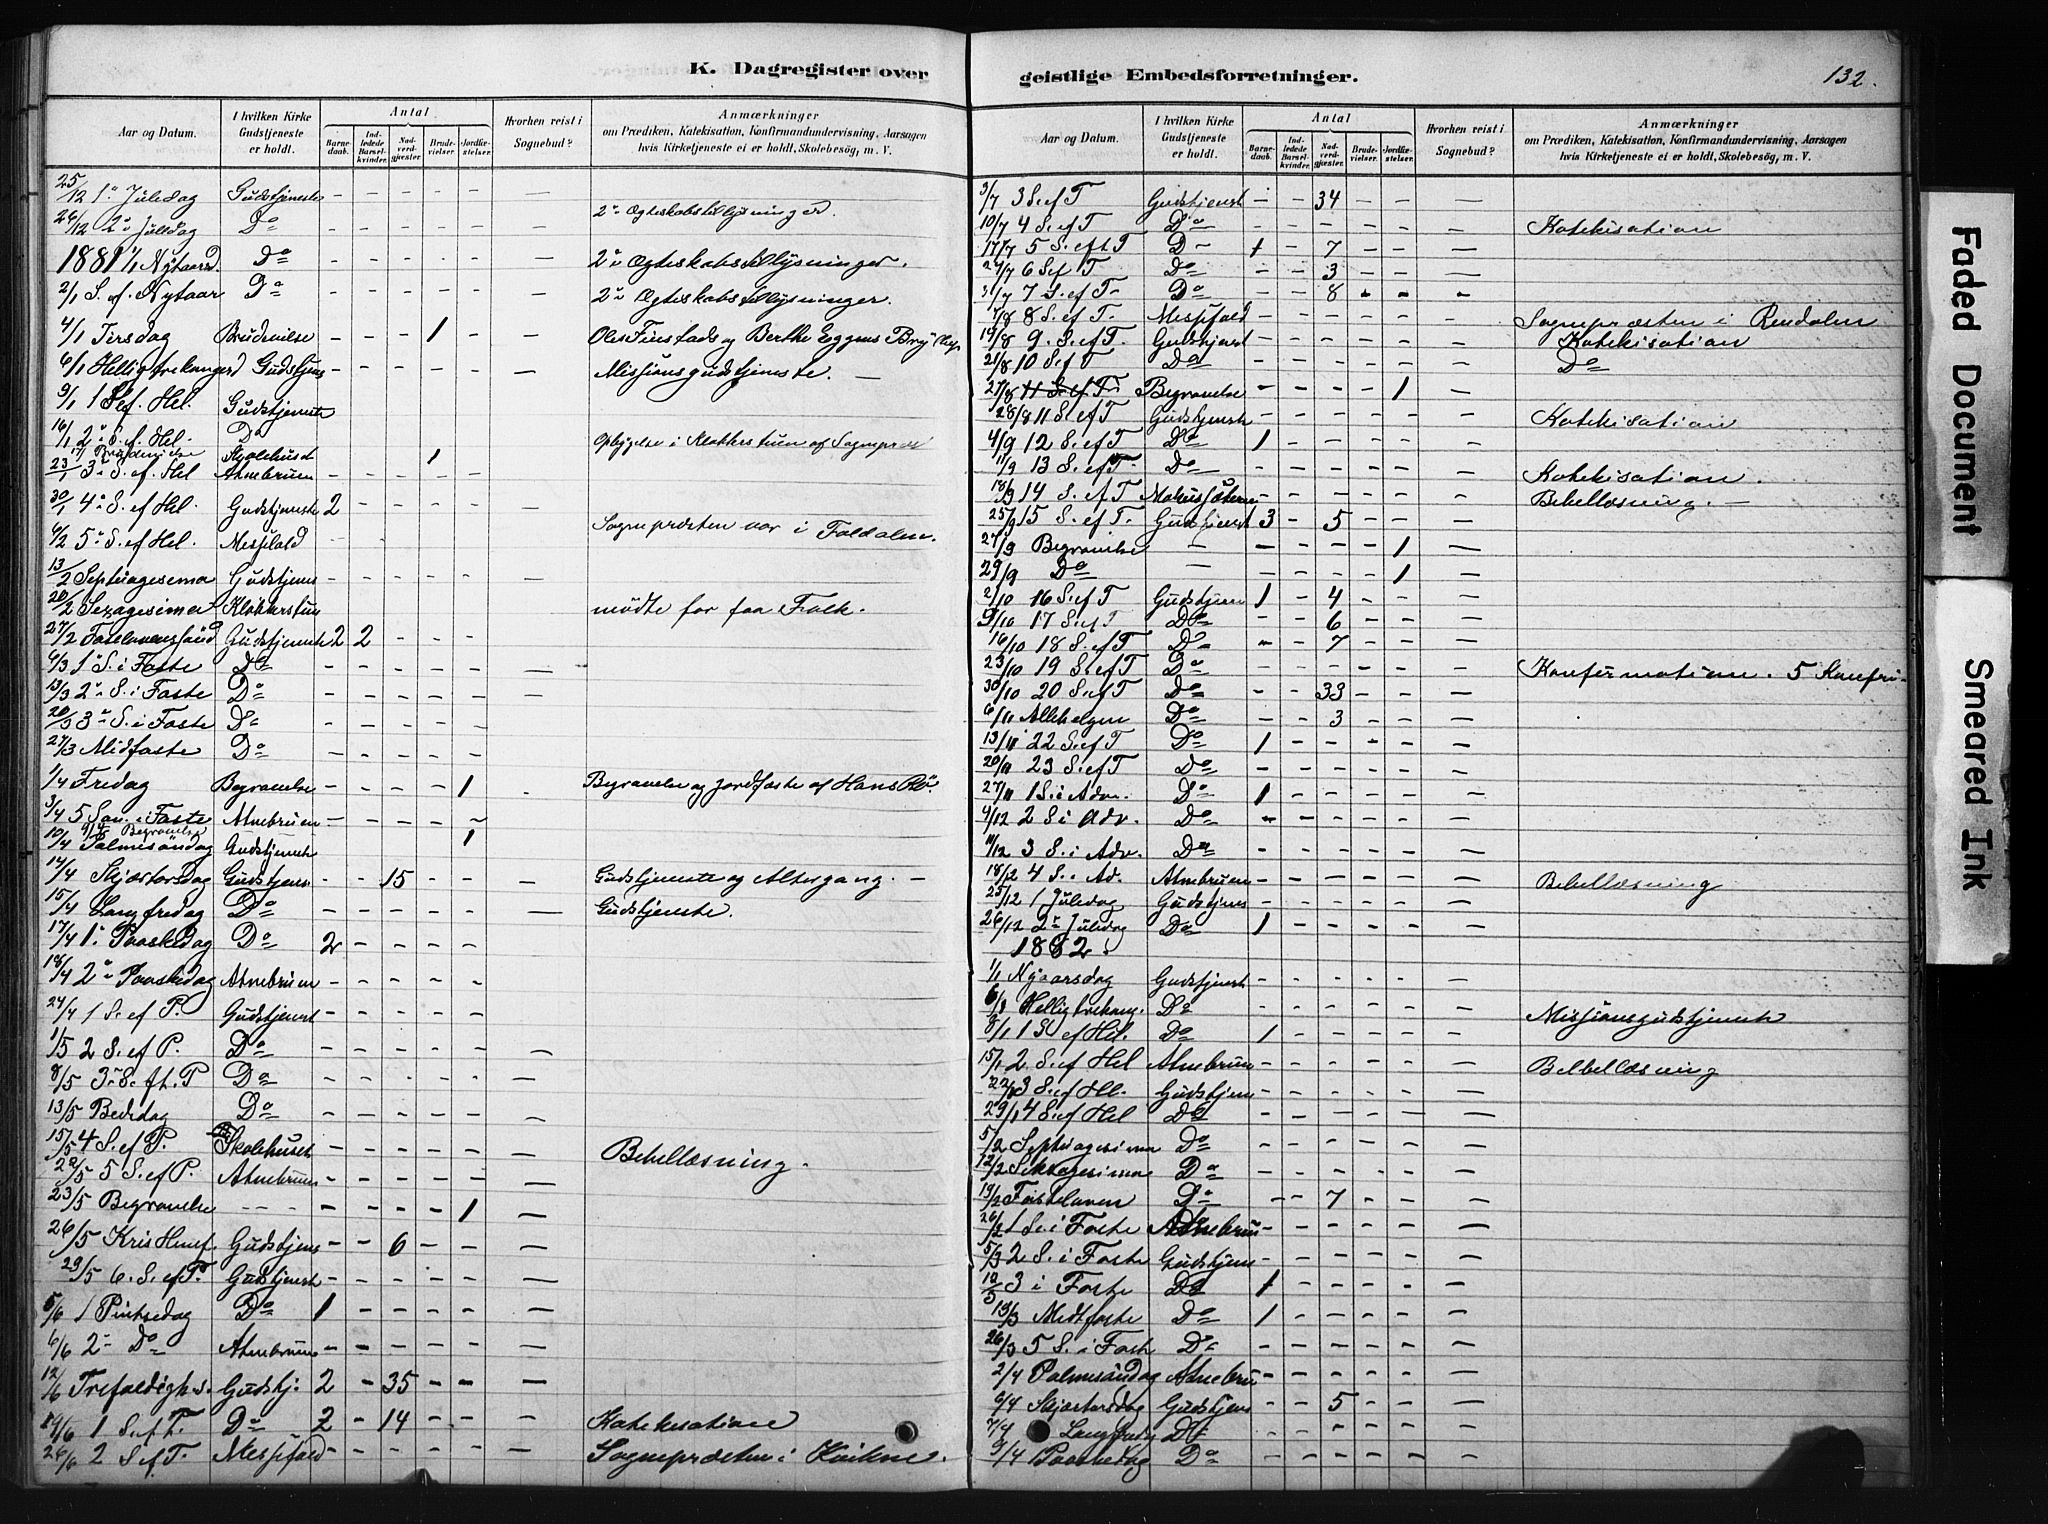 K. Dagregister over
Aar og Datum. I hvilken Kirke Gudstjeneste er holdt. Antal Barnedaab. Indledede Barselkvinder. Nadverdgjæster. Brudevielser. Jordfæstelser. Hvorhen reist i Sognebud? Anmærkninger om Prædiken, Katekisation, Konfirmandundervisning, Aarsagen hvis Kirketjeneste ei er holdt, Skolebesøg, m. V.
25/12 1ᵉ Juledag Gudstjeneste - - - - - -
26/12 2ᵉ Juledag Do - - - - - - 2 Ægteskabstillysninger.
1881 1/1 Nytaarsd. Do - - - - - - 2 Ægteskabstillysninger.
2/1 S. ef. Nytaar Do - - - - - - 2 Ægteskabstillysninger.
4/1 Tirsdag Brudevielse - - - 1 - -
6/1 Helligtrekongersd Gudstjens - - - - - - Missionsgudstjeneste. -
9/1 1 S ef. Hel. Gudstjeneste
16/1 2 S. ef. Hel. Do Opbyggelse i Klokkerstuen af Sognepræs
Brudevielse Skolehuset 1
23/1 3 S. ef. Hel Atnebruen - - - - -
30/1 4 S. ef Hel. Gudstjeneste 2 - - - -
6/2 5 S. ef Hel. Messefald - - Sognepræsten var i Foldalen.
13/2 Septuagesima Gudstjens - - - - - -
20/2 Sexagesima Klokkerstun mødte for faa Folk.
27/2 Fastelavenssønd Gudstjeneste 2 2 - - -
6/3 1 S. i Faste Do - - - - - -
13/3 2 S. i Faste Do - - - - - -
20/3 3 S. i Faste Do - - - - -
27/3 Midfaste Do - - - - - -
1/4 Fredag Begravelse - - - - 1 - Begravelse og Jordfaste af Hans
3/4 5 Søn. i Faste Atnebruen - - - - -
Begravelse 1
10/4 Palmesøndag Gudstjeneste
14/4 Skjærtorsdag Gudstjens - - 15 - - - Gudstjeneste og Altergang. -
15/4 Langfredag Do - - - - - - Gudstjeneste.
17/4 1 Paaskedag Do 2 - - - -
18/4 2 Paaskedag Atnebruen - - - - -
24/4 1 S. ef P. Gudstjenest - - - - - -
1/5 2 S. ef P. Do - - - - - -
8/5 3 S. ef t. P Do - - - - - -
13/5 Bededag Do - - - - - -
15/5 4 S. ef P. Skolehuset - - - - - - Bibellæsning.
22/5 5 S. ef P. Atnebruen - - - - - -
23/5 Begravelse - - - - - - 1 -
26/5 Kris Himf. Gudstjens - - 6 - - -
29/5 6. S. ef P. Gudstjenst - - - - - -
5/6 1 Pintsedag Do 1 - - - - -
6/6 2 Do Atnebruen - - - - - -
12/6 Trefoldighs. Gudstj. 2 - 35 - - -
19/6 1 S. ef T. Do 2 - 14 - - - Katekisation
26/6 2 S. ef T. Messefald - - - - - - Sognepræsten i Kvikne.
geistlige Embedsforretninger. 132.
Aar og Datum. I hvilken Kirke Gudstjeneste er holdt. Antal Barnedaab. Indledede Barselkvinder. Nadverdgjæster. Brudevielser. Jordfæstelser. Hvorhen reist i Sognebud? Anmærkninger om Prædiken, Katekisation, Konfirmandundervisning, Aarsagen hvis Kirketjeneste ei er holdt, Skolebesøg, m. V.
3/7 3 S. ef T Gudstjenest - - 34 - - -
10/7 4 S. ef T Do - - - - - - Katekisation
17/7 5 S. ef t T D - 1 - 7 - - -
24/7 6 S ef T Do - - 3 - - -
31/7 7 S. ef T. Do - - 8 - - -
7/8 8 S. ef T. Messefald - - - - - - Sognepræsten i Rendalen
14/8 9. S. ef T. Gudstjenest - - - - - - Katekisation
21/8 10 S. ef T Do - - - - - - Do
27/8 11 S. ef T. Begravelse - - - - 1 -
28/8 11 S. ef T Gudstjenst - - - - - - Katekisation
4/9 12 S. ef T Do 1 - - - - -
11/9 13 S. ef T. Do - - - - - - Katekisation.
18/9 14 S. ef T - - - - - - Bibellæsning. -
25/9 15 S. ef T. Gudstjenest 3 - 5 - - -
27/9 Begravelse - - - - - 1 -
29/9 Do - - - - - 1 -
2/10 16 S. ef T Gudstjene 1 - 4 - - -
9/10 17 S. ef T Do - - 6 - - -
16/10 18 S. ef T Do - - 7 - - -
23/10 19 S. ef T Do - - - - - - Konfirmation. 5 Konfir-
30/10 20 S. ef T Do - - 33 - - -
6/11 Allehelgen Do - - 3 - - -
13/11 22 S. ef T Do 1 - - - - -
20/11 23 S. ef T Do - - - - - -
27/11 1 S. i Adv. Do 1 - - - - -
4/12 2 S i Adv. Do - - - - - -
11/12 3 S. i Adv. Do - - - - - -
18/12 4 S. i Ad. Atnebruen - - - - - - Bibellæsning
25/12 1 Juledag Gudstjens - - - - - -
26/12 2 Juledag Do 1 - - - - -
1882.
1/1 Nyaarsdag Gudstjenst - - - - - -
6/1 Helligtrekong. Do - - - - - - Missionsgudstjeneste
8/1 1 S. ef Hel. Do 1 - - - - -
15/1 2 S. ef Hel Atnebruen - - - - - - Bibellæsning
22/1 3 S. ef Hel. Gudstjens - - - - - -
29/1 4 S. ef Hel Do - - - - - -
5/2 Septuagesima Do - - - - - -
12/2 Seksagesima Do - - - - - -
19/2 Fastelaven Do - - 7 - - -
26/2 1 S. i Faste Atnebrun - - - - - -
5/3 2 S. i Faste Gudstjens - - - - - -
12/3 3 i Faste Do 1 - - - - -
19/3 Midtfaste Do 1 - - - - -
26/3 5 S. i Fast Do - - - - - -
2/4 Palmesøndag Atnebru - - - - - -
6/4 Skjærtorsdag Gudstjens - - 5 - - -
7/4 Langfredg Do - - - - - -
9/4 Paaskedag Do - - - - - -
Faded Document
Smeared Ink